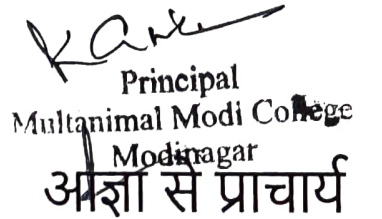 Principal
Multanimal Modi College
Modinagar
आज्ञा से प्राचार्य